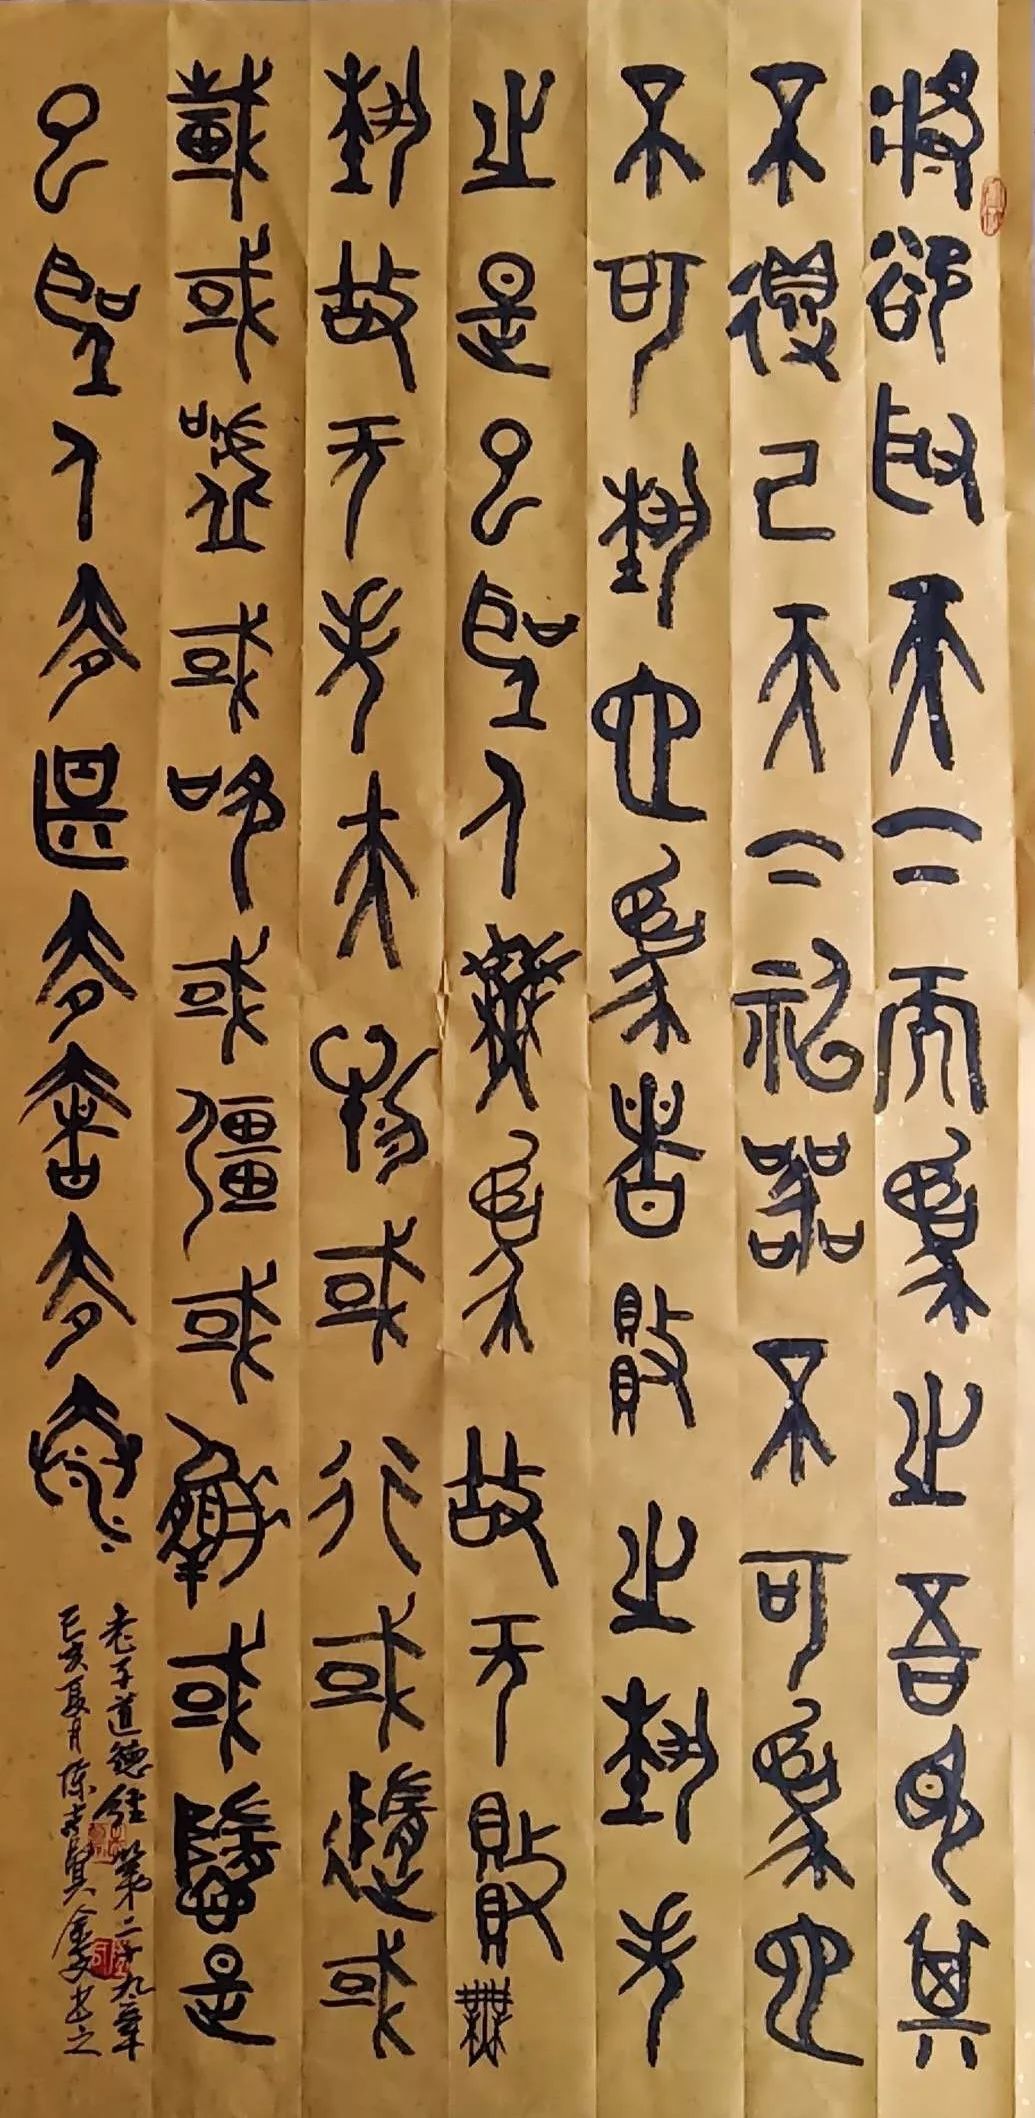 将欲取天下而為之吾見其
不得已天下神器不可為也
不可執也為者敗之執失
之是以聖人無為故无敗無
執故无失夫物或行或隨或
載或噓或吹或彊或羸或隳是
以聖人去甚去奢去泰
老子道德经第二十九章
己亥夏月陈金文书之